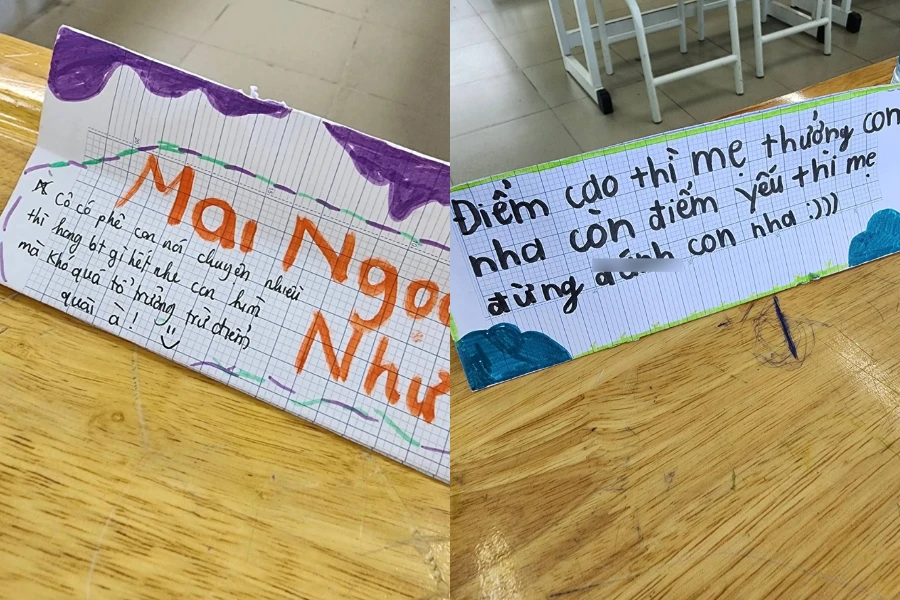 Mai Ngọ
Như
Cô có phê con nói chuyện nhiều
thì hong bt gì hết nhe con hiền
mà khó quá tổ trưởng trừ điểm
quài à !
Điểm cao thì mẹ thưởng con
nha còn điểm yếu thì mẹ
đừng đánh con nha :)))